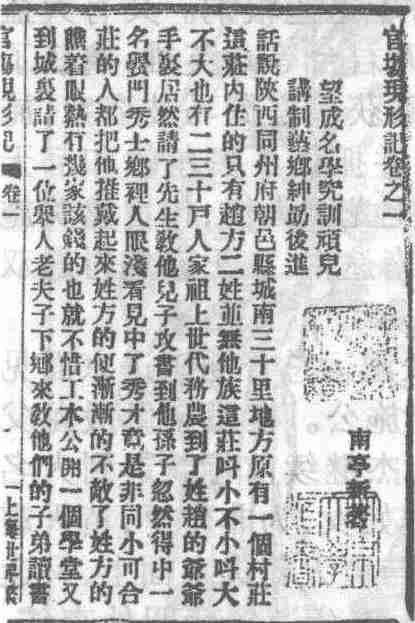 官場現形記卷之一
望成名學究訓頑兒
講制藝鄉紳勗後進
南亭新著
話說陝西同州府朝邑縣城南三十里地方原有一個村莊
這莊內住的只有趙方二姓並無他族這莊呌小不小呌大
不大也有二三十戶人家祖上世代務農到了姓趙的爺爺
手裏居然請了先生敎他兒子攻書到他孫子忽然得中一
名黌門秀士鄉裡人眼淺看見中了秀才竟是非同小可合
莊的人都把他推戴起來姓方的便漸漸的不敵了姓方的
瞧着眼熱有幾家該錢的也就不惜工本公開一個學堂又
到城裏請了一位舉人老夫子下鄉來敎他們的子弟讀書
官場現形記 卷一 一